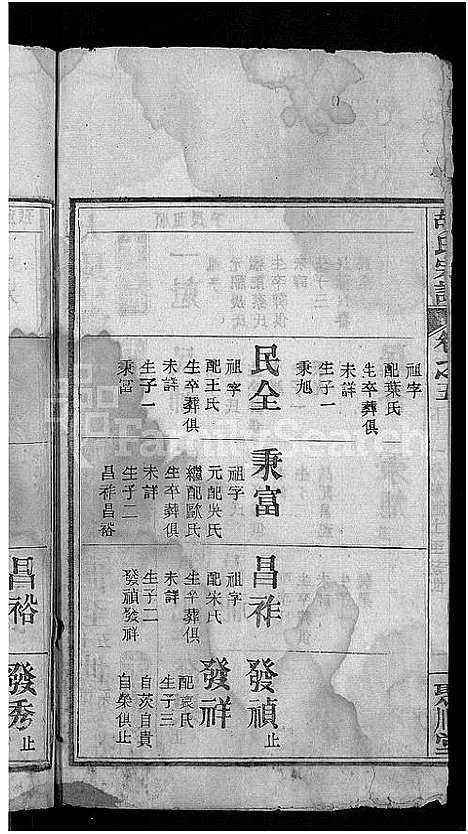 胡氏宗譜
卷之五
聚順堂
祖字
配葉氏
生卒葬俱
未詳
生子一
秉旭
民全
祖字
配王氏
生卒葬俱
未詳
生子一
秉富
秉富
祖字
元配吳氏
繼配歐氏
生卒葬俱
未詳
生子二
昌祚昌裕
昌祚
祖字
配宋氏
生卒葬俱
未詳
生子二
發禎發祥
發禎止
發祥
配袁氏
生子三
自茨自貴
自榮俱止
昌裕
發秀止
FamilySearch